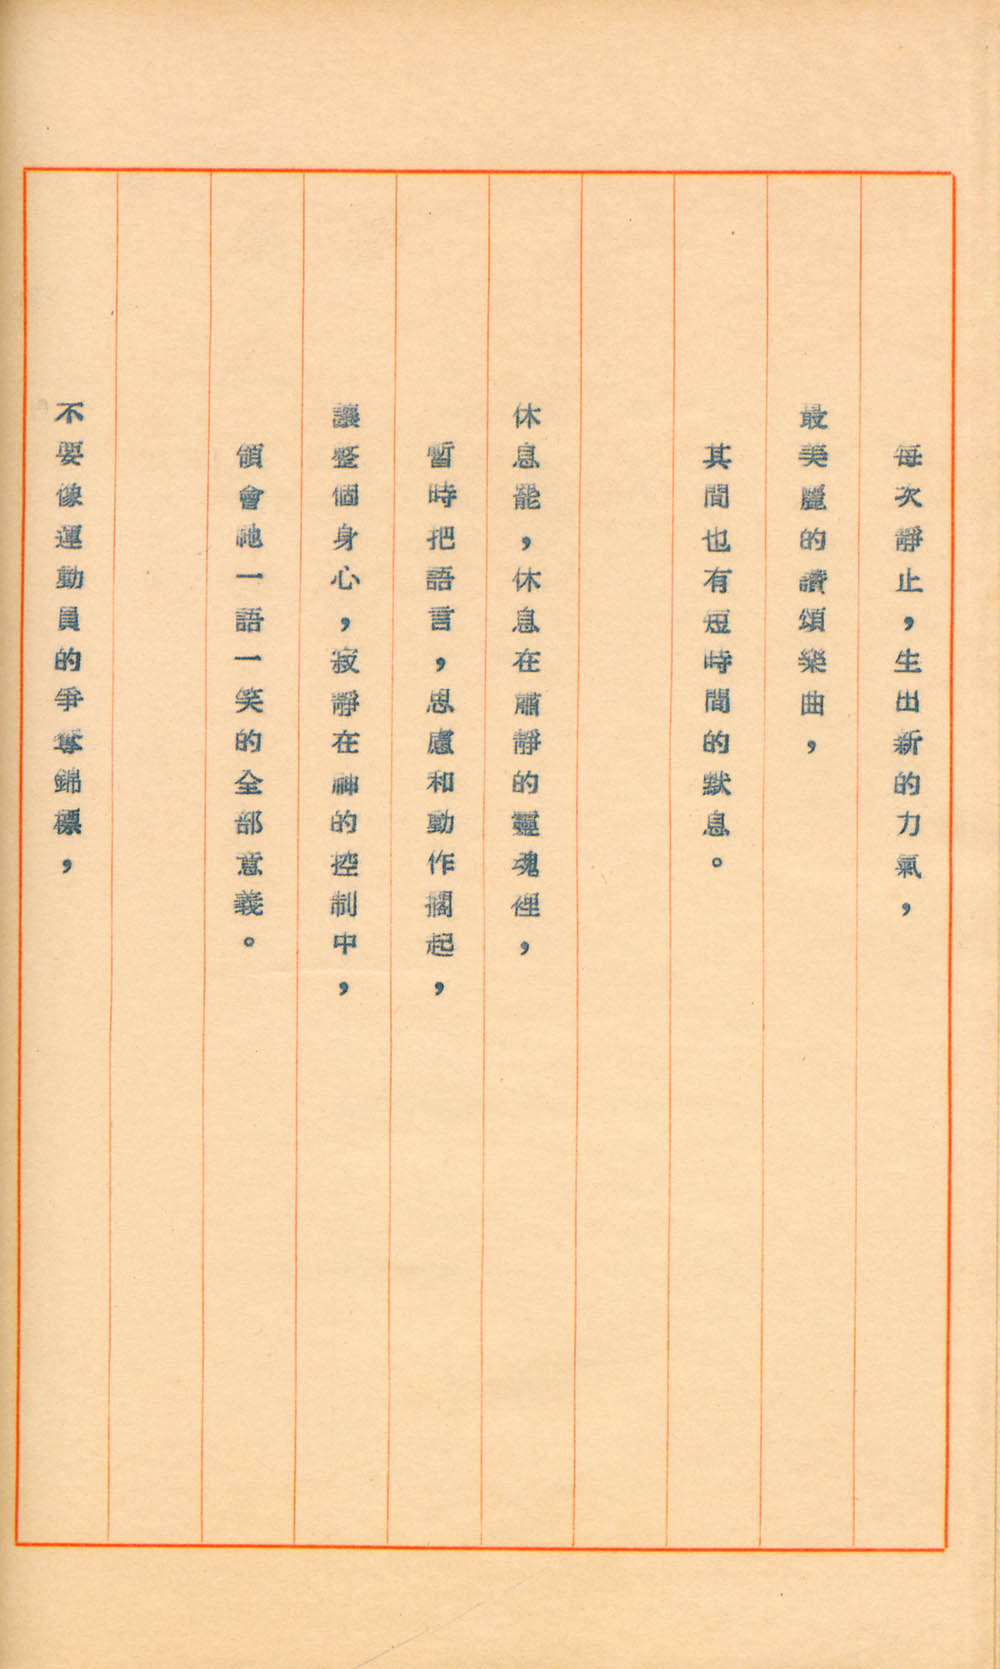 每次靜止，生出新的力氣，
最美麗的讚頌樂曲，
其間也有短時間的默息。
休息罷，休息在肅靜的靈魂裡，
暫時把語言，思慮和動作擱起，
讓整個身心，寂靜在神的控制中，
領會祂一語一笑的全部意義。
不要像運動員的爭奪錦標，